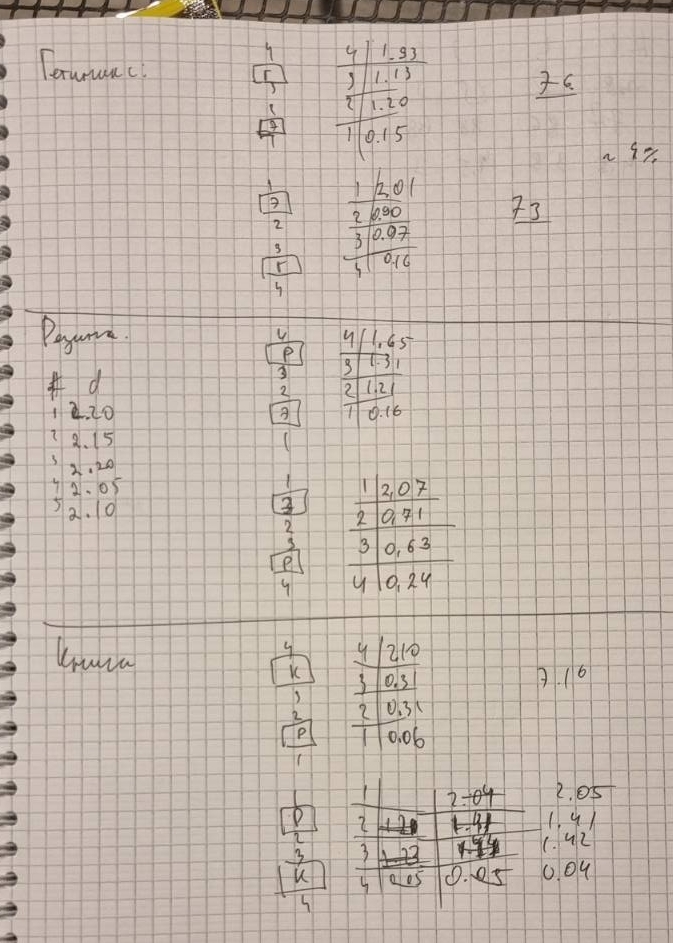 Гетинакс:
4
Г
3
2
Э
1
4 1.93
3 1.13
2 1.20
1 0.15
7.6
~ 4%
1
Э
2
3
Г
4
1 2.01
2 0.90
3 0.97
4 0.16
73
Резина.
# d
1 2.20
2 2.15
3 2.20
4 2.05
5 2.10
4
Р
3
2
Э
1
4 1.65
3 1.31
2 1.21
1 0.16
1
Э
2
3
Р
4
1 2,07
2 0,71
3 0,63
4 0,24
Книга
4
К
3
2
Р
1
4 2.10
3 0.31
2 0.31
1 0.06
7.16
1
Р
2
3
К
4
1 2.04 2.05
2 1.41
3 1.42
4 0.05 0.05 0.04